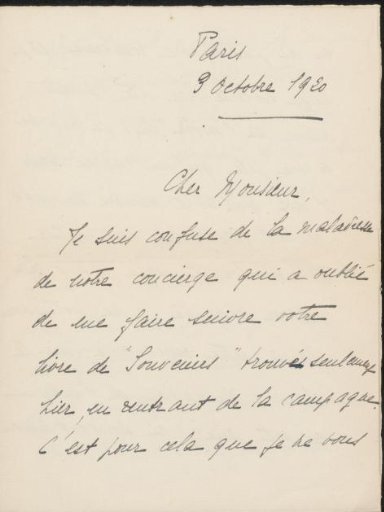 Paris
9 Octobre 1920
Cher Monsieur,
Je suis confuse de la maladresse
de notre concierge qui a oublié
de me faire suivre votre
livre de "Souvenirs" trouvés seulement
hier, en rentrant de la campagne.
C'est pour cela que je ne vous